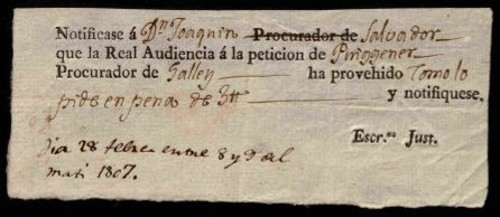 Notificase á Dn Joaquin Procurador de Salvador
que la Real Audiencia á la peticion de Puiggener
Procurador de Galley ha provehido Como lo
pide en pena de 3tt y notifiquese.
Escr.no Just.
Dia 28 febrer entre 8 y 9 del
mati 1807.